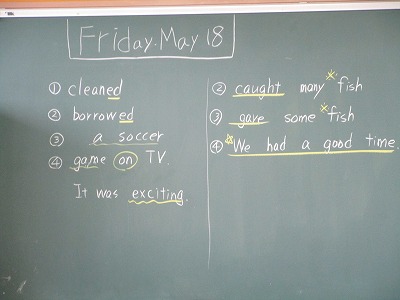 Friday. May 18
① cleaned
② borrowed
③ a soccer
④ game on TV.
It was exciting.
② caught many fish
③ gave some fish
④ We had a good time